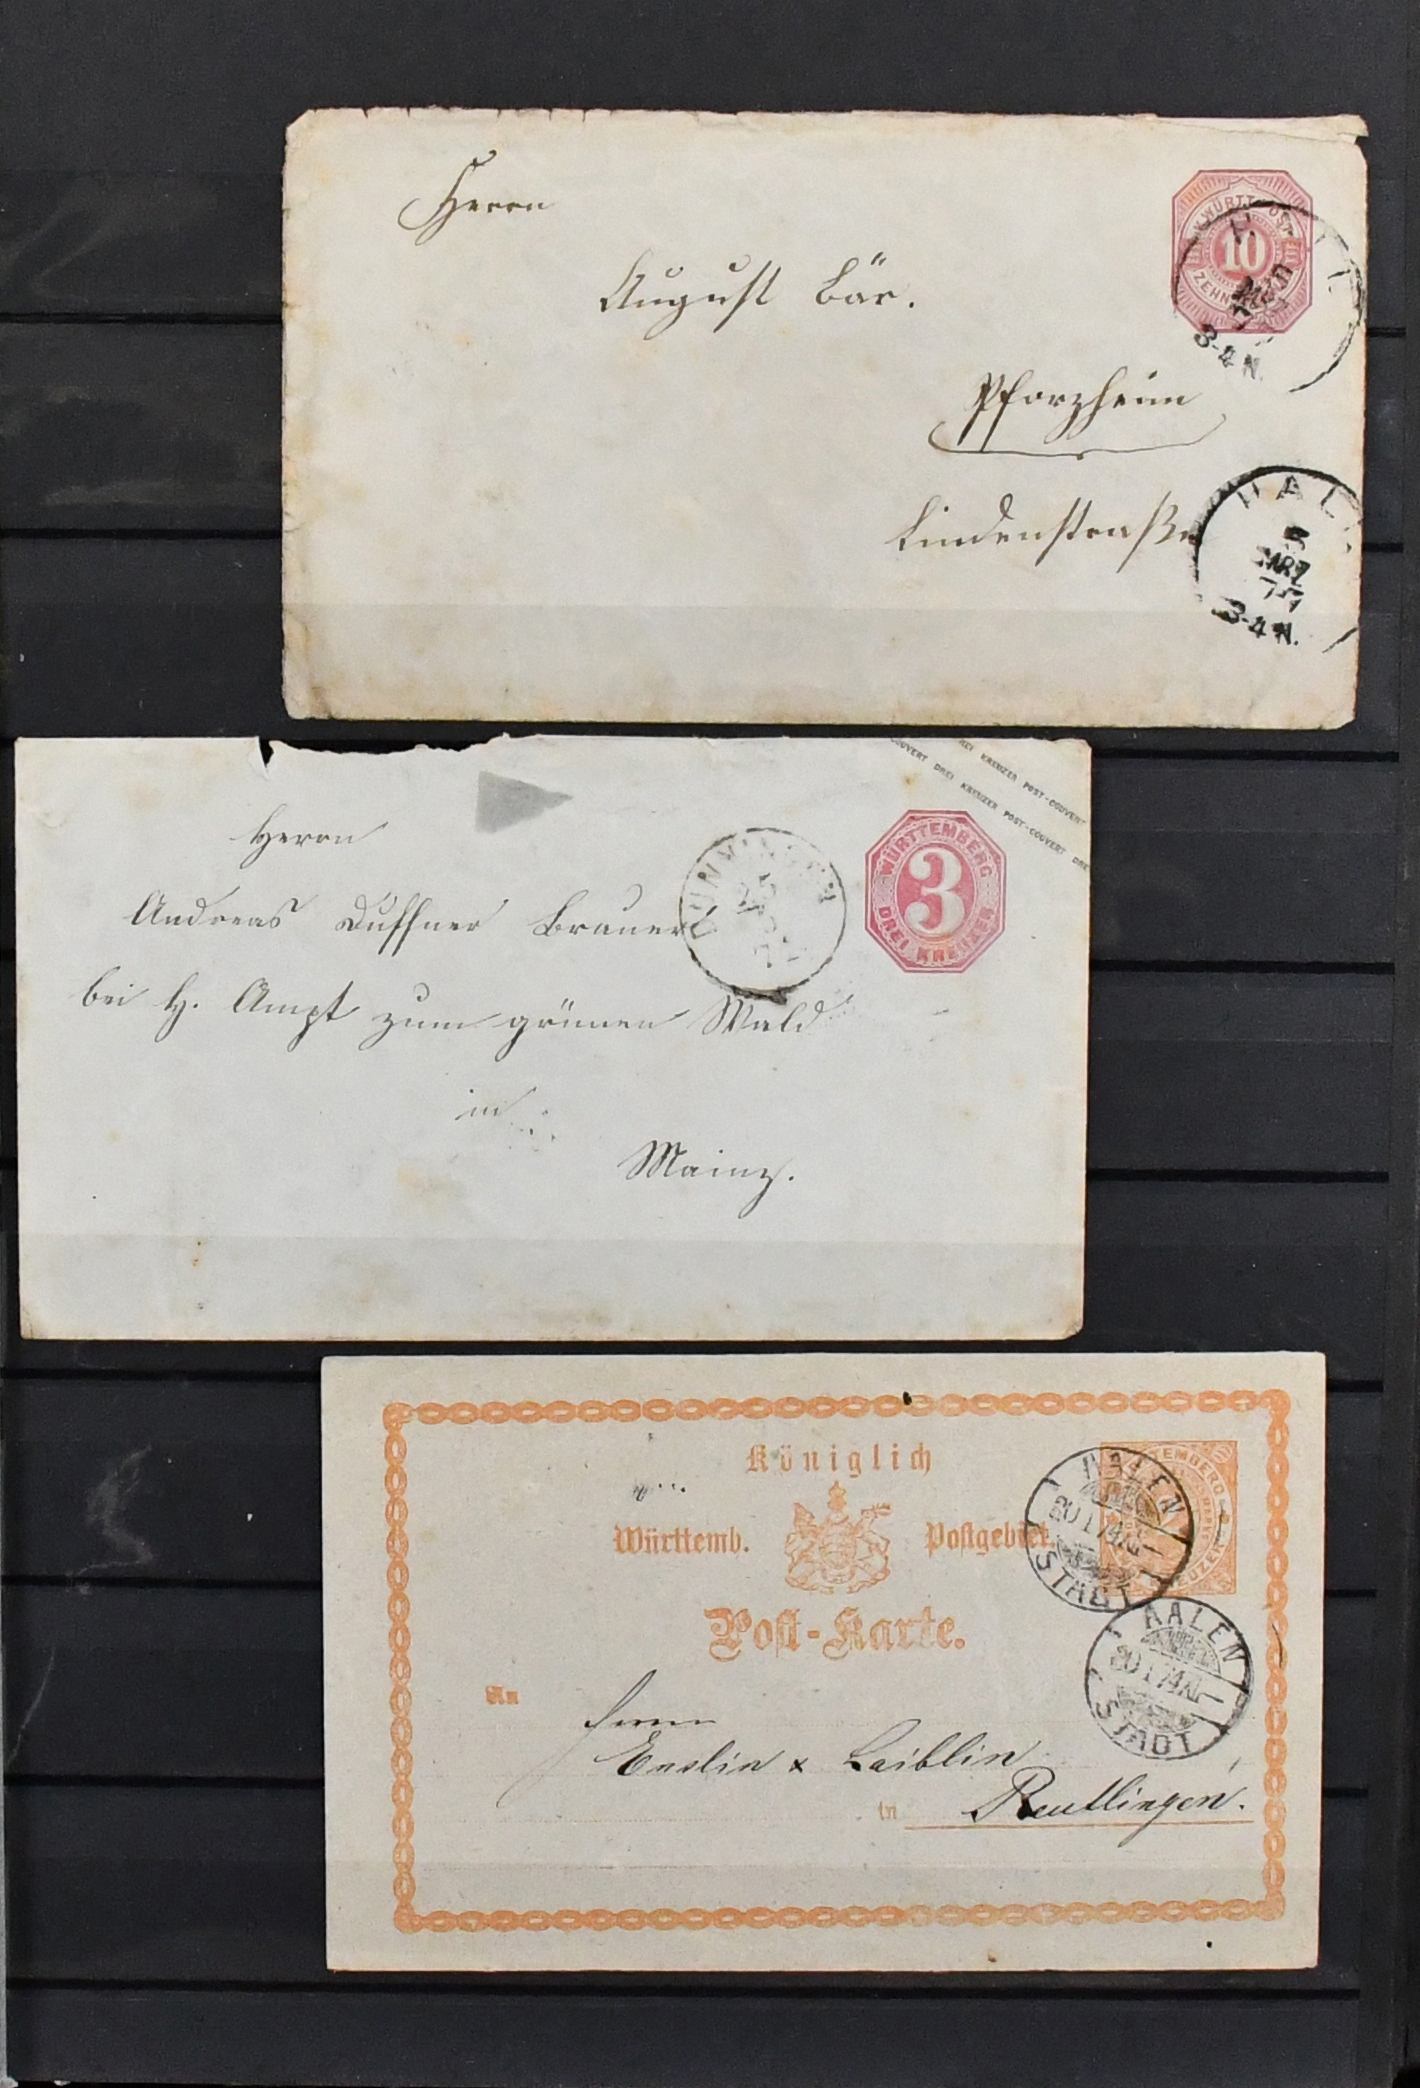 Herrn
August Bär.
Pforzheim
Lindenstraße
K. WÜRTT. POST
10
ZEHN
3-4 N.
HALL
5
MRZ
75
3-4 N.
COUVERT DREI KREUZER POST-COUVERT DREI
DREI KREUZER POST-COUVERT
Herrn
Andreas Duffner Brauer
bei H. Ampt zum grünen Wald
in
Mainz.
WÜRTTEMBERG
3
DREI KREUZER
Königlich
Württemb. Postgebiet.
Post-Karte.
An
Herrn
Enslin & Laiblin
in Reutlingen.
AALEN
20 1 74
STADT
AALEN
20 1 74
STADT